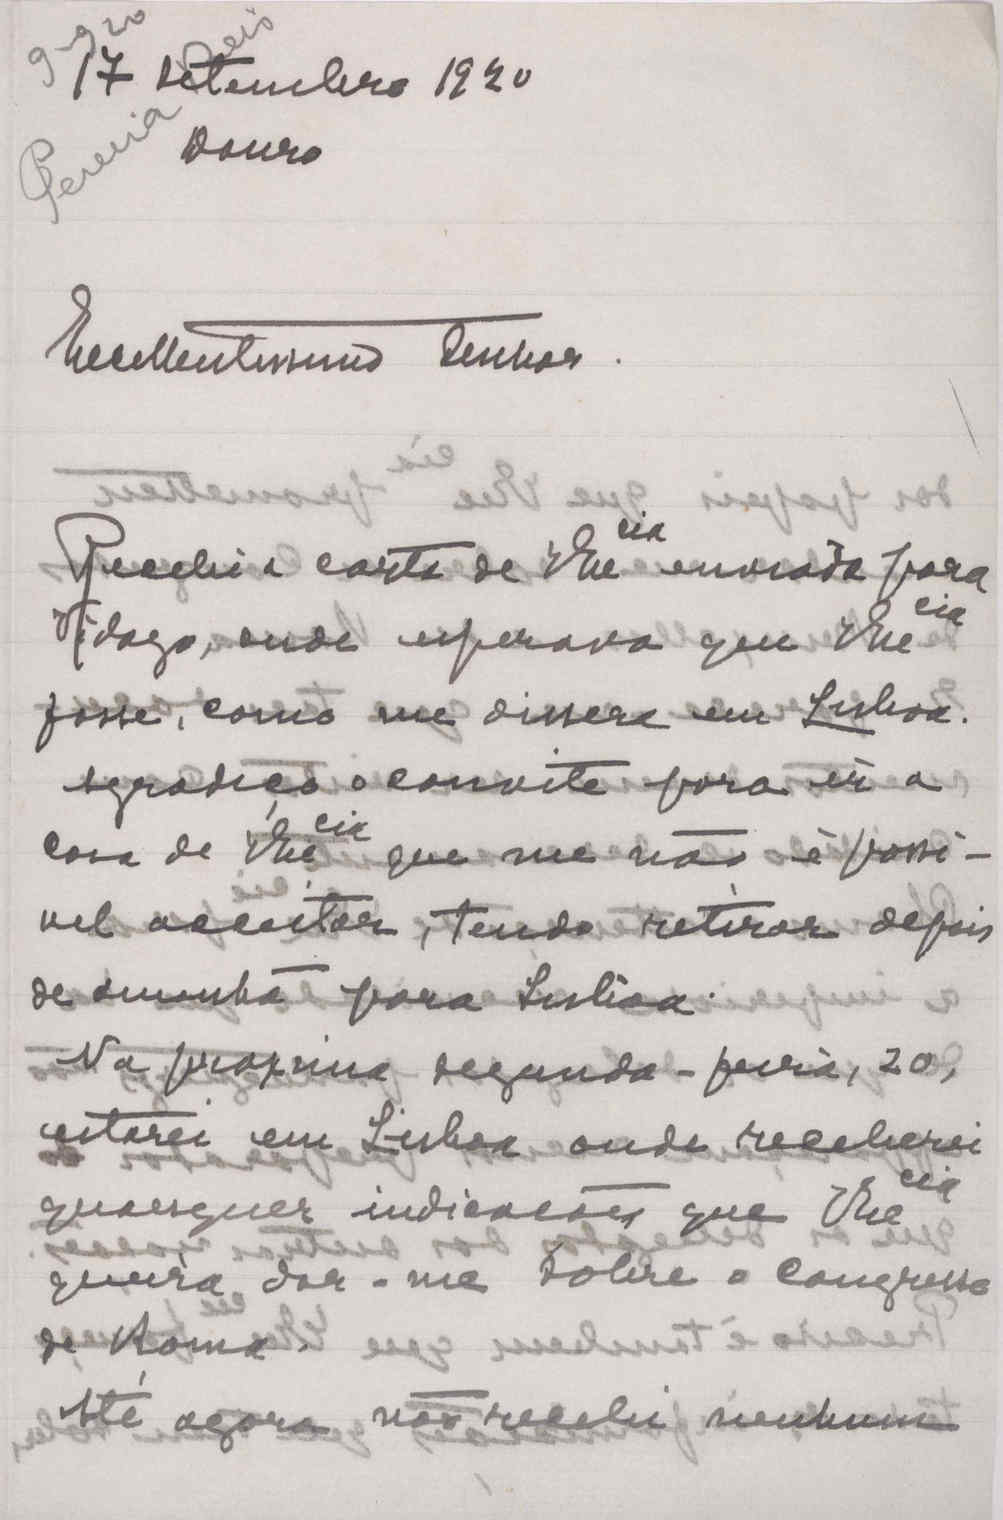 9-9-20
Pereira Reis
17 Setembro 1920
Douro
Excellentissimo Senhor.
Recebi a carta de V Exᶜⁱᵃ enviada para
Vidago, onde esperava que V Exᶜⁱᵃ
fosse, como me dissera em Lisboa.
Agradeço o convite para ir a
casa de V Exᶜⁱᵃ que me não é possi-
vel acceitar, tendo retirar depois
de amanhã para Lisboa.
Na proxima segunda-feira, 20,
estarei em Lisboa onde receberei
quaesquer indicações que V Exᶜⁱᵃ
queira dar-me sobre o Congresso
de Roma.
Até agora não recebi nenhum